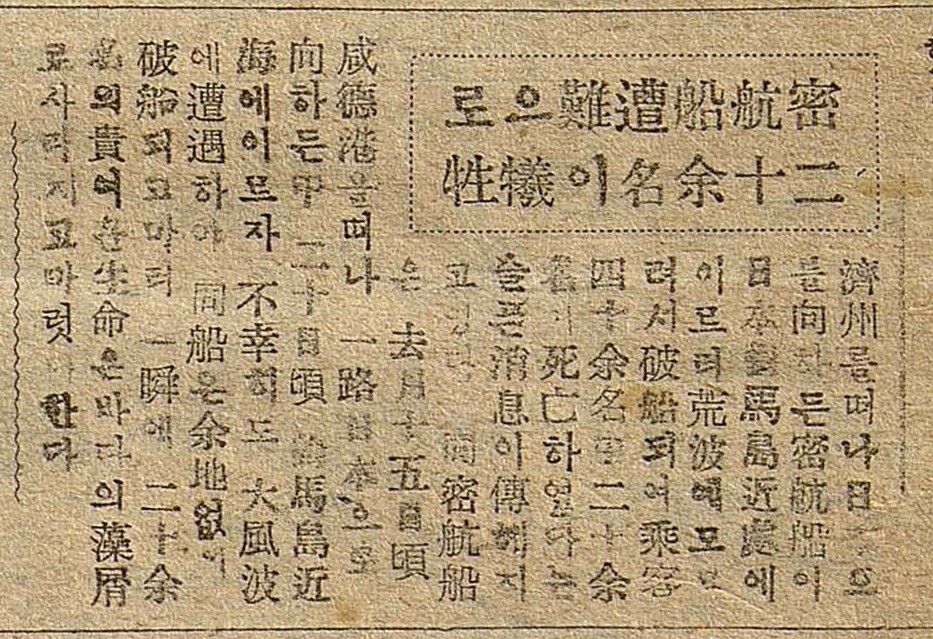 密航船遭難으로
二十余名이犧牲
濟州를떠나日本으
로向하든密航船이
日本對馬島近處에
이르러荒波에모
러서破船되여乘客
四十余名中二十余
名이死亡하였다는
슬픈消息이傳해지
고 同密航船
은 去月十五日頃
咸德港을떠나 一路日本으로
向하든中 二十日頃 對馬島近
海에이르자 不幸히도 大風波
에遭遇하야 同船은余地없이
破船되고마러 一瞬에 二十余
名의貴여운生命은바다의藻屑
로사라지고마럿다한다